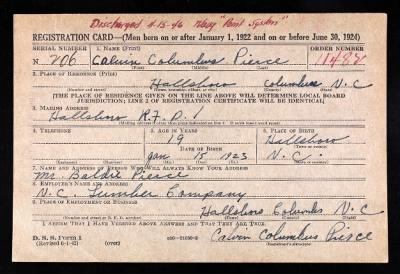 Discharged 4-15-46 Navy "Point System"
REGISTRATION CARD—(Men born on or after January 1, 1922 and on or before June 30, 1924)
SERIAL NUMBER 1. NAME (Print) ORDER NUMBER
N 206 Calvin Columbus Pierce 11482
(First) (Middle) (Last)
2. PLACE OF RESIDENCE (Print)
Hallsboro Columbus N.C
(Number and street) (Town, township, village, or city) (County) (State)
[THE PLACE OF RESIDENCE GIVEN ON THE LINE ABOVE WILL DETERMINE LOCAL BOARD
JURISDICTION; LINE 2 OF REGISTRATION CERTIFICATE WILL BE IDENTICAL]
3. MAILING ADDRESS
Hallsboro R.F.D. 1
[Mailing address if other than place indicated on line 2. If same insert word same]
4. TELEPHONE 5. AGE IN YEARS 6. PLACE OF BIRTH
19 Hallsboro
DATE OF BIRTH (Town or county)
Jan 15 1923 N.C.
(Exchange) (Number) (Mo.) (Day) (Yr.) (State or country)
7. NAME AND ADDRESS OF PERSON WHO WILL ALWAYS KNOW YOUR ADDRESS
Mr. Baldie Pierce
8. EMPLOYER'S NAME AND ADDRESS
N.C. Lumber Company
9. PLACE OF EMPLOYMENT OR BUSINESS
Hallsboro Columbus N.C
(Number and street or R. F. D. number) (Town) (County) (State)
I AFFIRM THAT I HAVE VERIFIED ABOVE ANSWERS AND THAT THEY ARE TRUE.
D. S. S. Form 1
(Revised 6-1-42) (over) Calvin Columbus Pierce
(Registrant's signature)